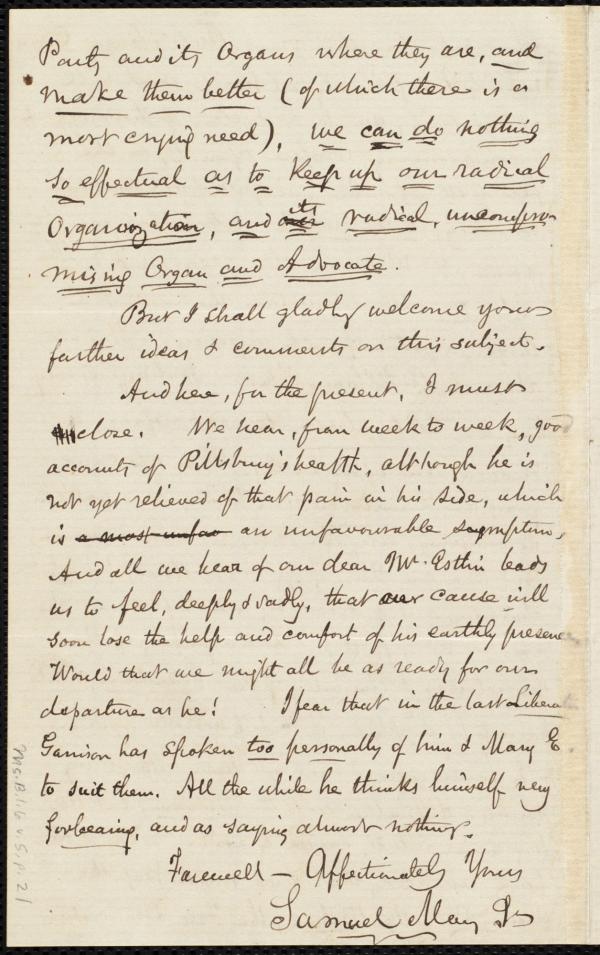 Party and its Organs where they are, and
make them better (of which there is a
most crying need), we can do nothing
so effectual as to keep up our radical
Organization, and its radical, uncompro-
mising Organ and Advocate.
But I shall gladly welcome your
further ideas & comments on this subject.
And here, for the present, I must
close. We hear, from week to week, good
accounts of Pillsbury's health, although he is
not yet relieved of that pain in his side, which
is a most unfav an unfavourable symptom.
And all we hear of our dear Mr. Estlin leads
us to feel, deeply & sadly, that our cause will
soon lose the help and comfort of his earthly presence
Would that we might all be as ready for our
departure as he! I fear that in the last Liberator
Garrison has spoken too personally of him & Mary E.
to suit them. All the while he thinks himself very
forbearing, and as saying almost nothing.
Farewell — Affectionately Yours
Samuel May Jr
Ms.B.1.6 v.5, p.21